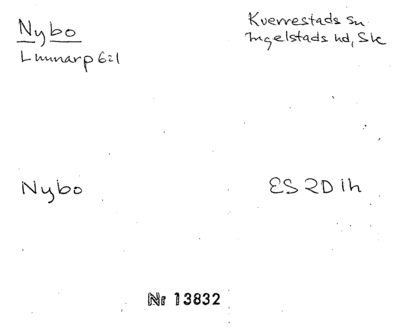 Nybo
Lunnarp 6:1
Kverrestads sn
Ingelstads hd, Sk
Nybo
ES 2D 1h
Nr 13832